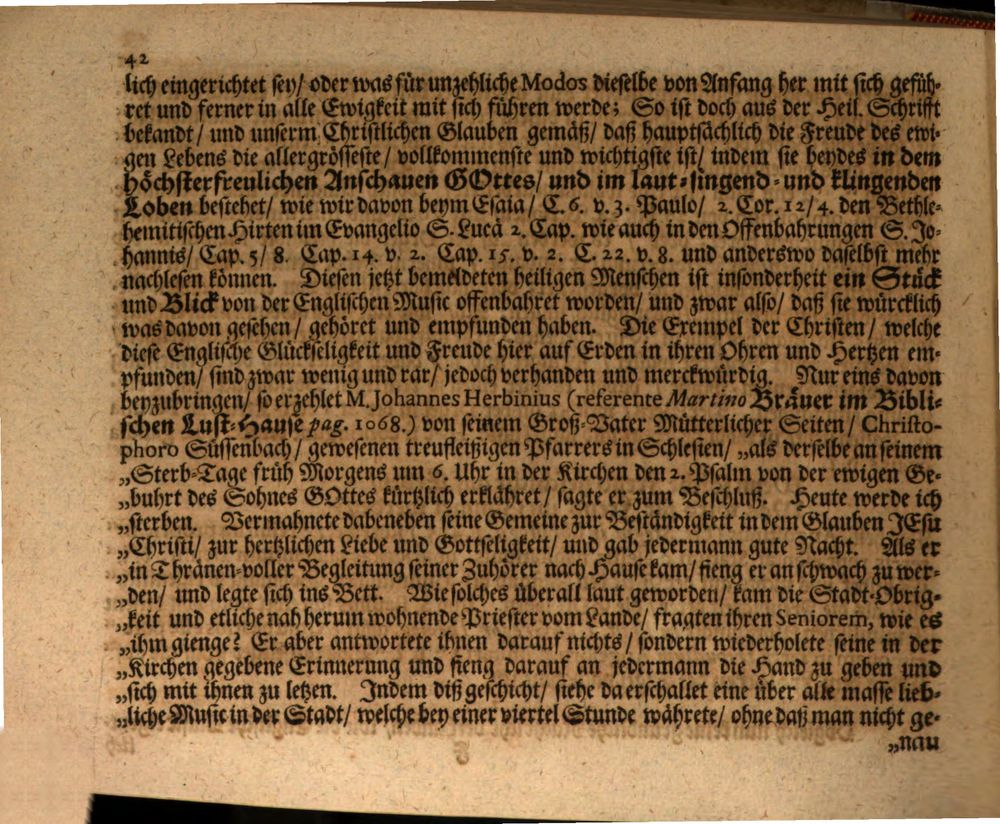 42
lich eingerichtet sey/ oder was für unzehliche Modos dieselbe von Anfang her mit sich gefüh-
ret und ferner in alle Ewigkeit mit sich führen werde; So ist doch aus der Heil. Schrifft
bekandt/ und unserm Christlichen Glauben gemäß/ daß hauptsächlich die Freude des ewi-
gen Lebens die allergrösseste/ vollkommenste und wichtigste ist/ indem sie beydes in dem
höchsterfreulichen Anschauen GOttes/ und im laut-singend-und klingenden
Loben bestehet/ wie wir davon beym Esaia/ C. 6. v. 3. Paulo/ 2. Cor. 12/4. den Bethle-
hemitischen Hirten im Evangelio S. Lucä 2. Cap. wie auch in den Offenbahrungen S. Jo-
hannis/ Cap. 5/ 8. Cap. 14. v. 2. Cap. 15. v. 2. C. 22. v. 8. und anderswo daselbst mehr
nachlesen können. Diesen jetzt bemeldeten heiligen Menschen ist insonderheit ein Stück
und Blick von der Englischen Music offenbahret worden/ und zwar also/ daß sie würcklich
was davon gesehen/ gehöret und empfunden haben. Die Exempel der Christen/ welche
diese Englische Glückseligkeit und Freude hier auf Erden in ihren Ohren und Hertzen em-
pfunden/ sind zwar wenig und rar/ jedoch verhanden und merckwürdig. Nur eins davon
beyzubringen/ so erzehlet M. Johannes Herbinius (referente Martino Bräuer im Bibli-
schen Lust-Hause pag. 1068.) von seinem Groß-Vater Mütterlicher Seiten/ Christo-
phoro Süssenbach/ gewesenen treufleißigen Pfarrers in Schlesien/ „als derselbe an seinem
„Sterb-Tage früh Morgens um 6. Uhr in der Kirchen den 2. Psalm von der ewigen Ge-
„buhrt des Sohnes GOttes kürtzlich erklähret/ sagte er zum Beschluß. Heute werde ich
„sterben. Vermahnete dabeneben seine Gemeine zur Beständigkeit in dem Glauben JEsu
„Christi/ zur hertzlichen Liebe und Gottseligkeit/ und gab jedermann gute Nacht. Als er
„in Thränen-voller Begleitung seiner Zuhörer nach Hause kam/ fieng er an schwach zu wer-
„den/ und legte sich ins Bett. Wie solches überall laut geworden/ kam die Stadt-Obrig-
„keit und etliche nah herum wohnende Priester vom Lande/ fragten ihren Seniorem, wie es
„ihm gienge? Er aber antwortete ihnen darauf nichts/ sondern wiederholete seine in der
„Kirchen gegebene Erinnerung und fieng darauf an jedermann die Hand zu geben und
„sich mit ihnen zu letzen. Indem diß geschicht/ siehe da erschallet eine über alle masse lieb-
„liche Music in der Stadt/ welche bey einer viertel Stunde währete/ ohne daß man nicht ge-
„nau